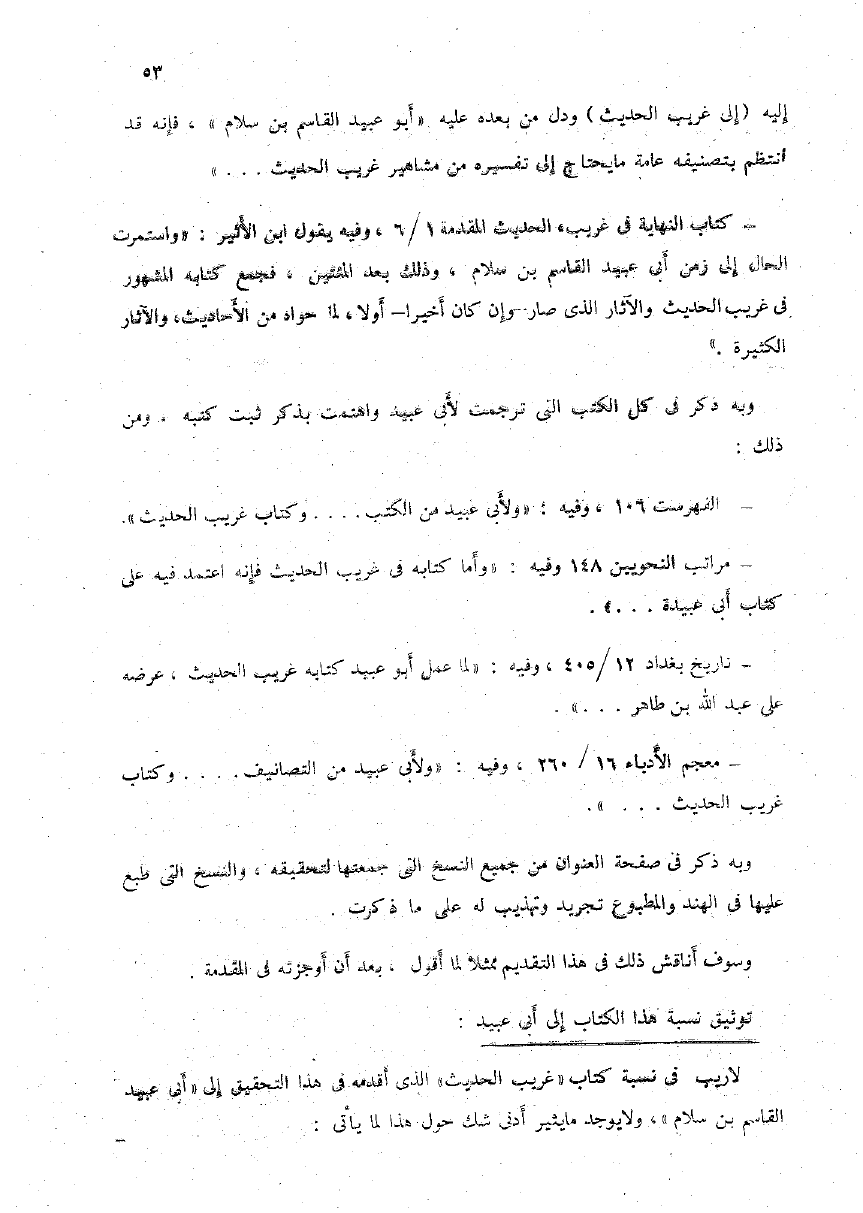 ٥٣
إليه (إلى غريب الحديث) ودل من بعده عليه «أبو عبيد القاسم بن سلام» ، فإنه قد
انتظم بتصنيفه عامة مايحتاج إلى تفسيره من مشاهير غريب الحديث . . . »
– كتاب النهاية فى غريب الحديث المقدمة ١/٦ ، وفيه يقول ابن الأثير : «واستمرت
الحال إلى زمن أبى عبيد القاسم بن سلام ، وذلك بعد المئتين ، فجمع كتابه المشهور
فى غريب الحديث والآثار الذى صار –وإن كان أخيرا– أولا ، لما حواه من الأحاديث، والآثار
الكثيرة .»
وبه ذكر فى كل الكتب التى ترجمت لأبى عبيد واهتمت بذكر ثبت كتبه . ومن
ذلك :
– الفهرست ١٠٦ ، وفيه : «ولأبى عبيد من الكتب. . . . وكتاب غريب الحديث».
– مراتب النحويين ١٤٨ وفيه : «وأما كتابه فى غريب الحديث فإنه اعتمد فيه على
كتاب أبى عبيدة . . .» .
– تاريخ بغداد ١٢/ ٤٠٥ ، وفيه : «لما عمل أبو عبيد كتابه غريب الحديث ، عرضه
على عبد الله بن طاهر . . .» .
– معجم الأدباء ١٦/ ٢٦٠ ، وفيه : «ولأبى عبيد من التصانيف. . . . وكتاب
غريب الحديث . . . ».
وبه ذكر فى صفحة العنوان من جميع النسخ التى جمعتها لتحقيقه ، والنسخ التى طبع
عليها فى الهند والمطبوع تجريد وتهذيب له على ما ذكرت .
وسوف أناقش ذلك فى هذا التقديم ممثلاً لما أقول ، بعد أن أوجزته فى المقدمة .
توثيق نسبة هذا الكتاب إلى أبى عبيد :
لاريب فى نسبة كتاب «غريب الحديث» الذى أقدمه فى هذا التحقيق إلى «أبى عبيد
القاسم بن سلام »، ولايوجد مايثير أدنى شك حول هذا لما يأتى :